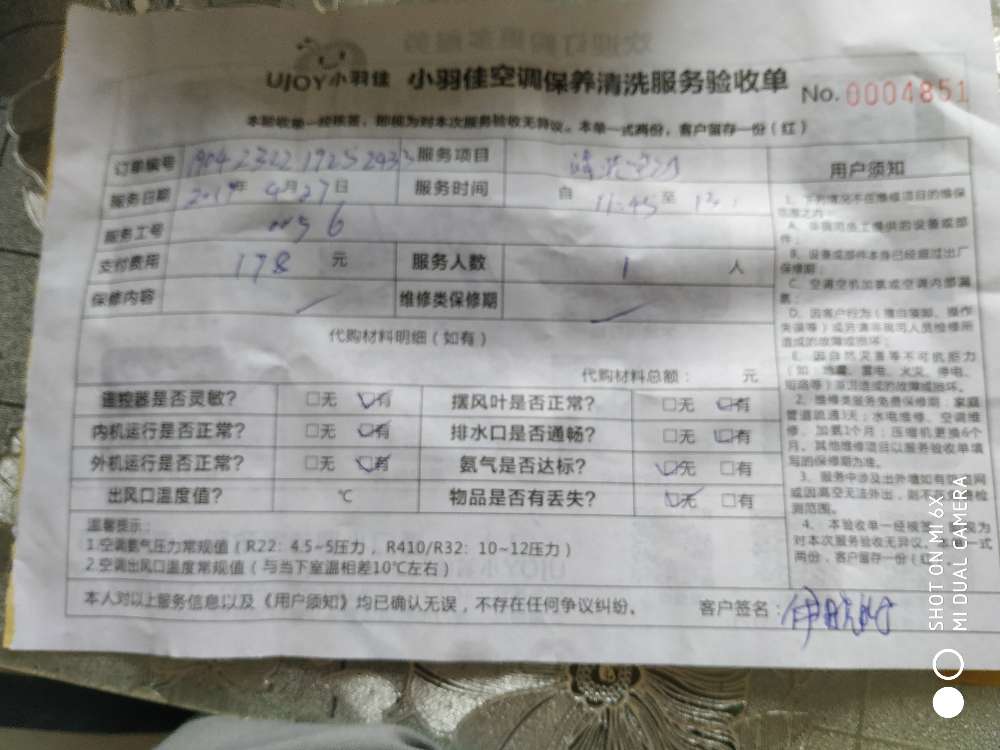 UJOY小羽佳 小羽佳空调保养清洗服务验收单 No.0004851
本验收单一经核签，即视为对本次服务验收无异议。本单一式两份，客户留存一份（红）
订单编号 服务项目 清洗空调
服务日期 2019年4月27日 服务时间 自 11:45 至
服务工号
支付费用 178 元 服务人数 1 人
保修内容 维修类保修期
代购材料明细（如有）
代购材料总额： 元
遥控器是否灵敏？ 无 有 摆风叶是否正常？ 无 有
内机运行是否正常？ 无 有 排水口是否通畅？ 无 有
外机运行是否正常？ 无 有 氨气是否达标？ 无 有
出风口温度值？ ℃ 物品是否有丢失？ 无 有
温馨提示：
1.空调氨气压力常规值（R22：4.5~5压力，R410/R32：10~12压力）
2.空调出风口温度常规值（与当下室温相差10℃左右）
本人对以上服务信息以及《用户须知》均已确认无误，不存在任何争议纠纷。 客户签名：
用户须知
1、下列情况不在维修项目的维保
范围之内：
A、非我司员工提供的设备或部
件；
B、设备或部件本身已经超过出厂
保修期；
C、空调空机加氨或空调内部漏
氨；
D、因客户行为（擅自装卸、操作
失误等）或另请非我司人员检修所
造成的故障或损坏；
E、因自然灾害等不可抗拒力
（如：地震、雷电、火灾、停电、
短路等）而引造成的故障或损坏。
2、维修类服务免费保修期：家庭
管道疏通3天；水电维修、空调维
修、加氨1个月；压缩机更换6个
月。其他维修项目以服务验收单填
写的保修期为准。
3、服务中涉及出外墙如有
或因高空无法外出，则不
测范围。
4、本验收单一经核签，视为
对本次服务验收无异议。本单一式
两份，客户留存一份（红）
SHOT ON MI 6X
MI DUAL CAMERA